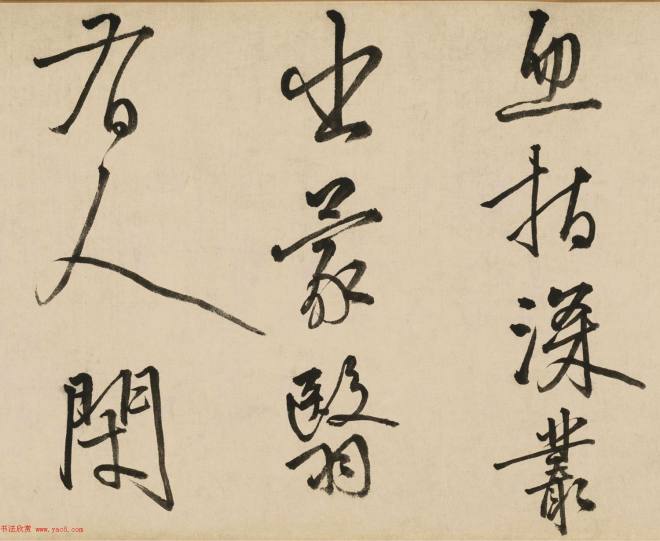 血指深叢
出蒙翳
有人閑
书法欣赏 www.yac8.com